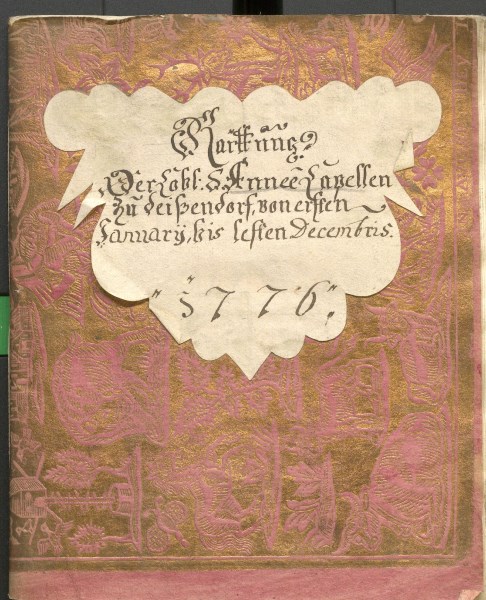 Raittung
Der Löbl: S: Annee Capellen
zu deißendorf, von ersten
January, bis lesten Decembris.
1776